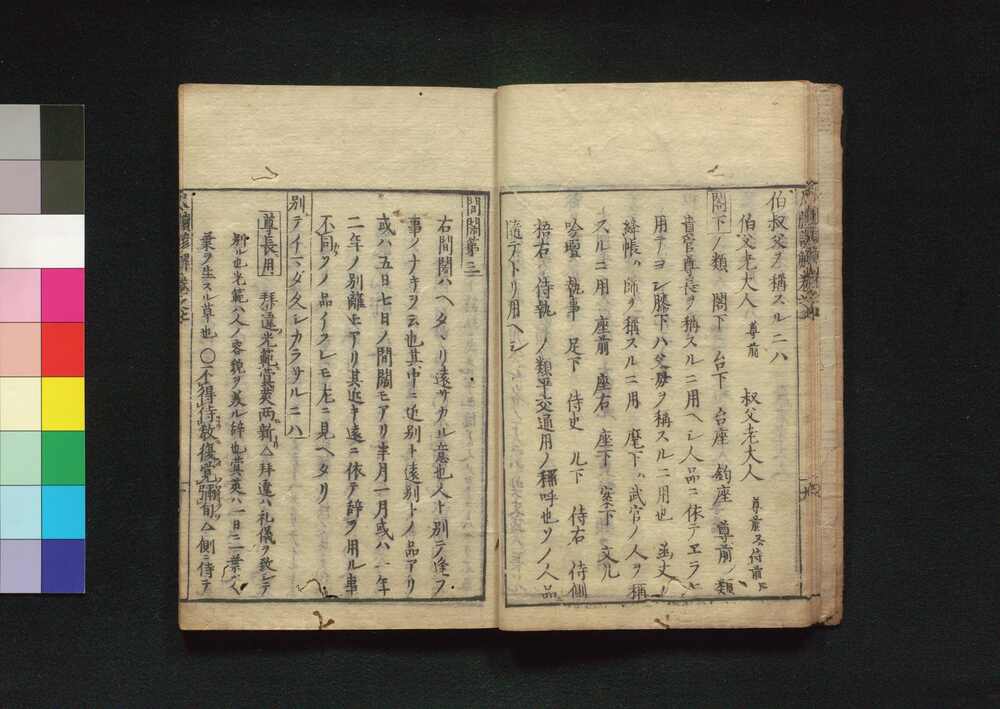 伯叔父ヲ稱スルニハ
伯父老大人 尊前 叔父老大人
閣下ノ類 閣下 台下 台座 鈞座 尊前ノ類
貴官尊長ヲ稱スルニ用ヘシ人品ニ依テヱラヒ
用テヨシ膝下ハ父母ヲ稱スルニ用也 函丈
絳帳ハ師ヲ稱スルニ用 麾下ハ武官ノ人ヲ稱
スルニ用 座前 座右 座下 案下 文几
吟壇 執事 足下 侍史 几下 侍右 侍側
梧右 侍執ノ類平交通用ノ稱呼也ソノ人品
隨テトリ用ヘシ
間闊第三
右間闊ハヘタヽリ遠サカル意也人ト別テ逢フ
事ノナキヲ云也其中ニ近別ト遠別トノ品アリ
或ハ五日七日ノ間闊モアリ半月一月或ハ一年
二年ノ別離モアリ其近キ遠ニ依テ辞ヲ用ル事
不同ソノ品イツレモ左ニ見ヘタリ
別テイマタ久シカラサルニハ
尊長用 拜違光範蓂莢両新△拜違ハ礼儀ヲ致シテ
別ル也光範ハ人ノ容貌ヲ美ル辞也蓂莢ハ一日ニ一葉
葉ヲ生スル草也 ○不得侍教傷覺彌旬△側ニ侍テ